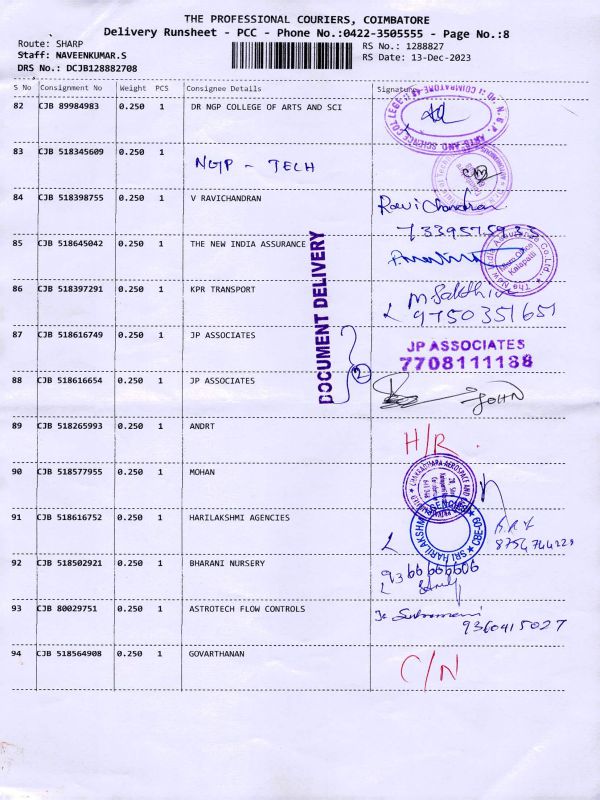 THE PROFESSIONAL COURIERS, COIMBATORE
Delivery Runsheet - PCC - Phone No.:0422-3505555 - Page No.:8
Route: SHARP
Staff: NAVEENKUMAR.S
DRS No.: DCJB128882708
RS No.: 1288827
RS Date: 13-Dec-2023
S No Consignment No Weight PCS Consignee Details Signature
82 CJB 89984983 0.250 1 DR NGP COLLEGE OF ARTS AND SCI
83 CJB 518345609 0.250 1 NGP - TECH
84 CJB 518398755 0.250 1 V RAVICHANDRAN Ravi Chandran
85 CJB 518645042 0.250 1 THE NEW INDIA ASSURANCE
86 CJB 518397291 0.250 1 KPR TRANSPORT M. Sakthivel
9750351651
DOCUMENT DELIVERY
87 CJB 518616749 0.250 1 JP ASSOCIATES JP ASSOCIATES
7708111188
2
88 CJB 518616654 0.250 1 JP ASSOCIATES JOHN
89 CJB 518265993 0.250 1 ANDRT H/R.
90 CJB 518577955 0.250 1 MOHAN
91 CJB 518616752 0.250 1 HARILAKSHMI AGENCIES
SRI HARILAKSHMI AGENCIES CBE-09
92 CJB 518502921 0.250 1 BHARANI NURSERY
93 CJB 80029751 0.250 1 ASTROTECH FLOW CONTROLS
9360415027
94 CJB 518564908 0.250 1 GOVARTHANAN C/N